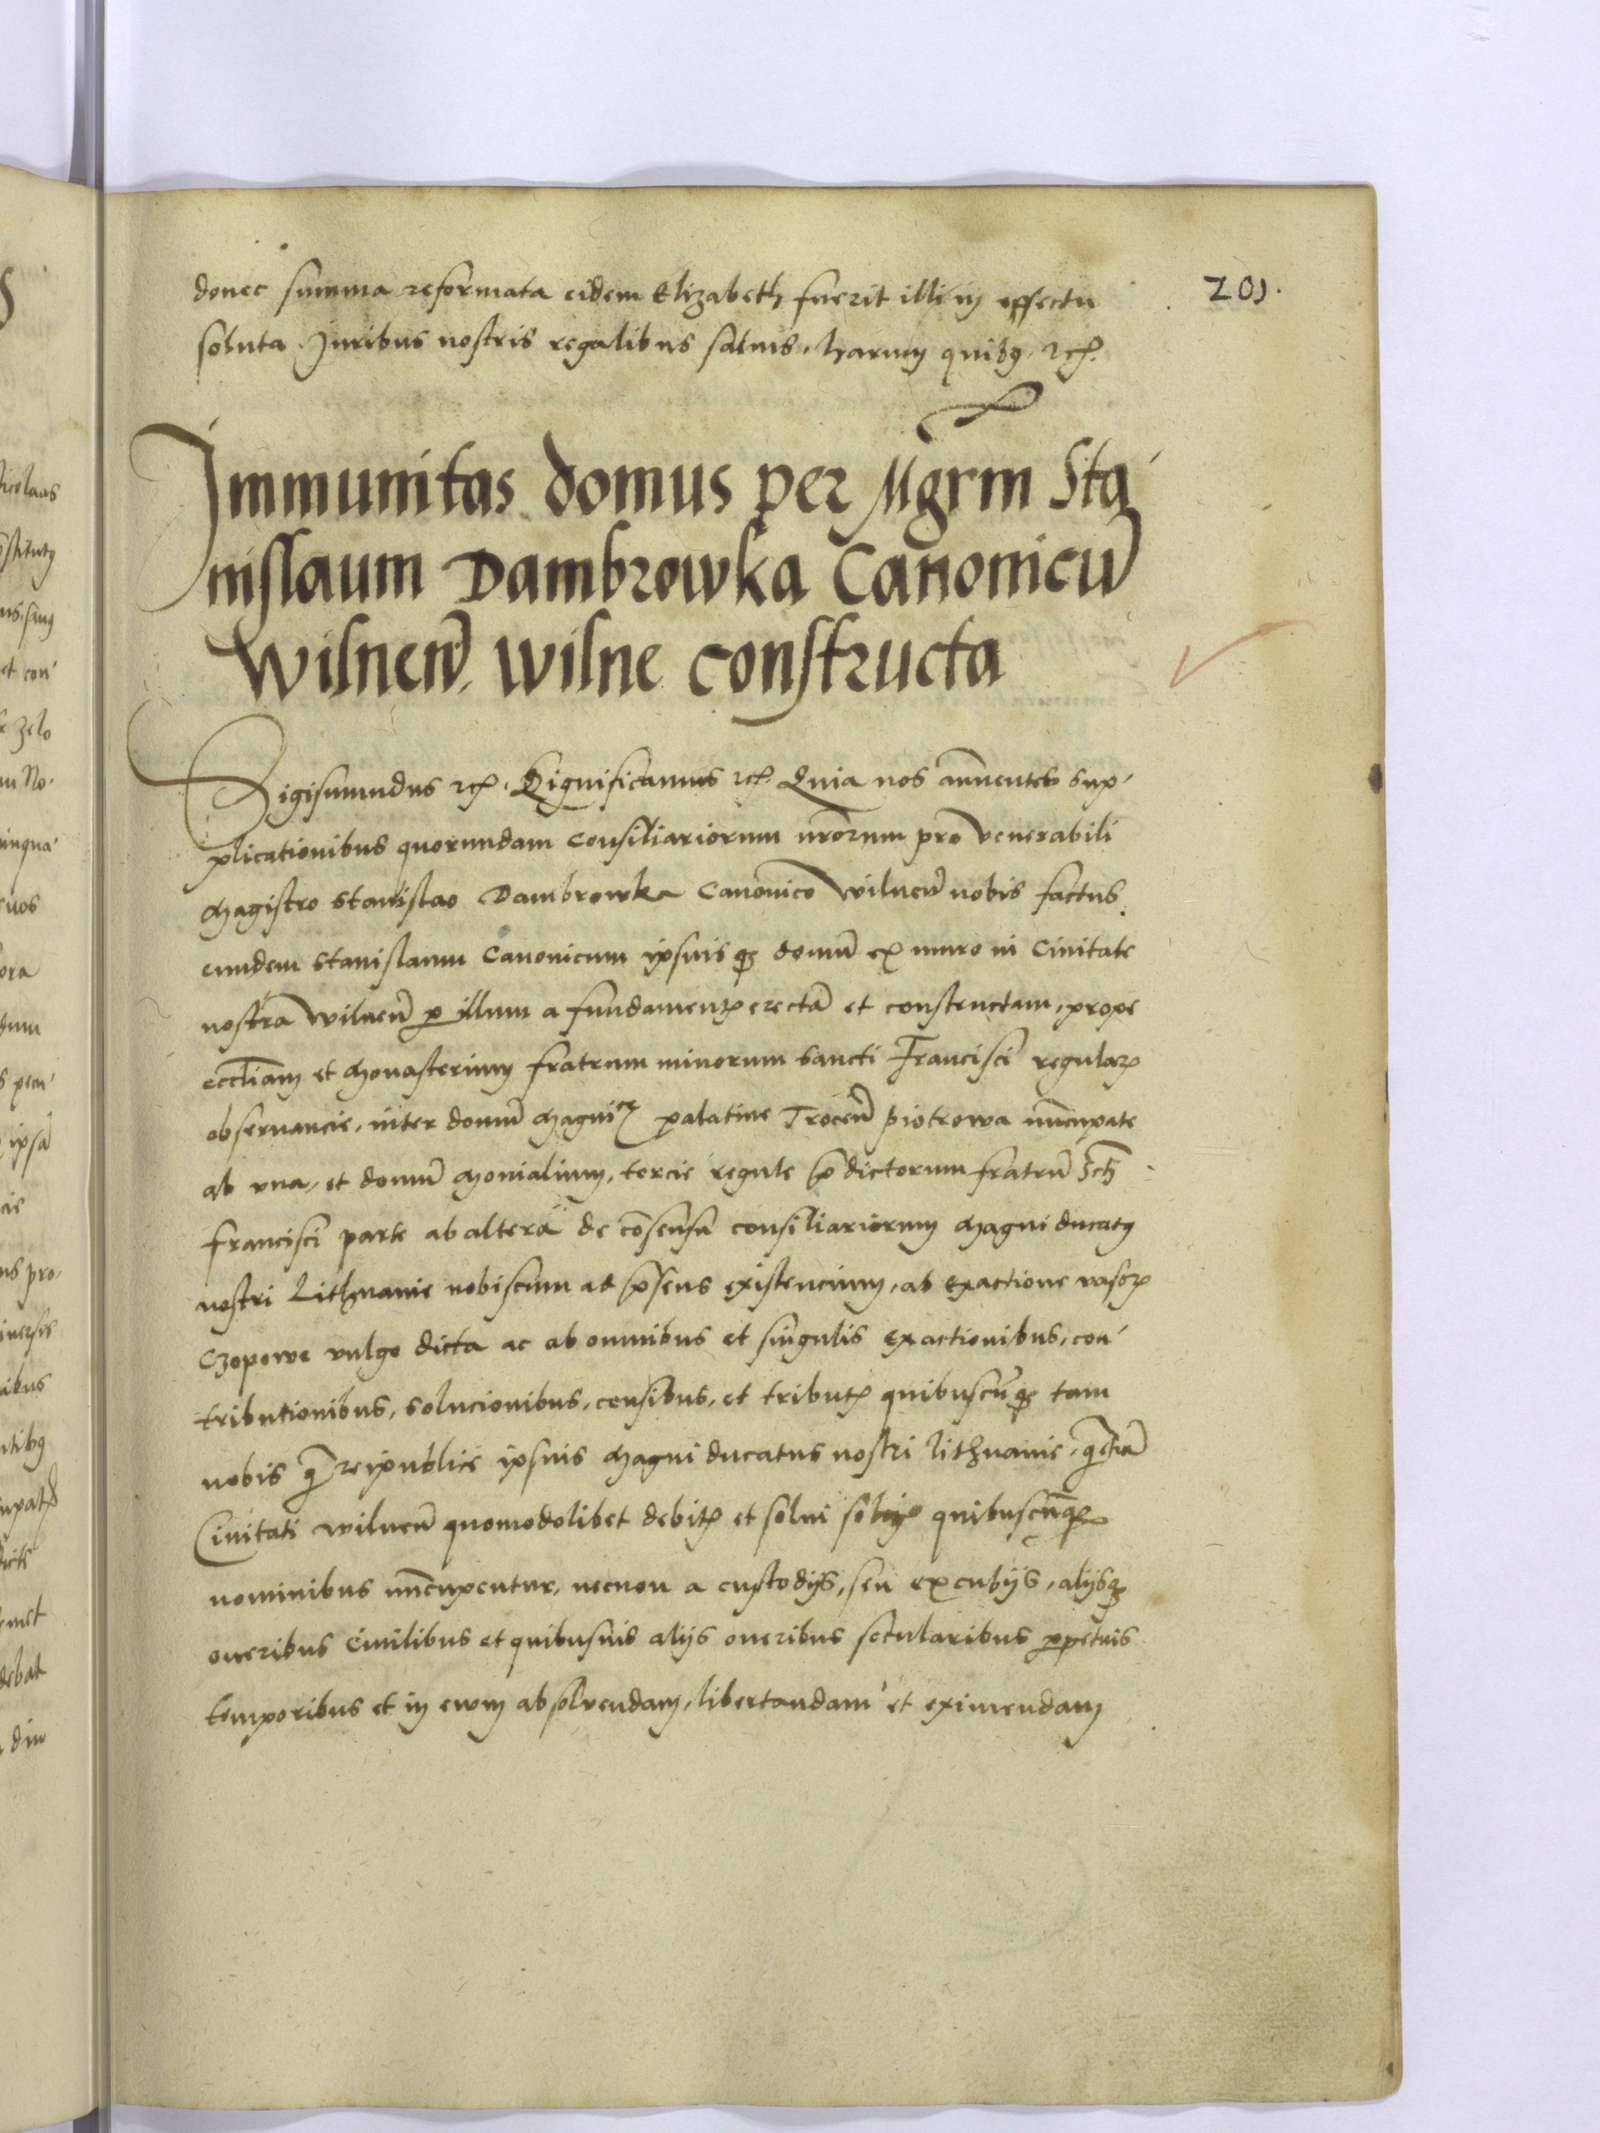 201.
donec summa reformata eidem Elizabeth fuerit illi in effectu
soluta. Juribus nostris regalibus saluis. harum quibus. etc.
Immunitas domus per Mgrm Sta
nislaum Dambrowka Canonicū
wilneñ. wilne constructa
Sigismundus etc. Significamus etc. Quia nos annuentes sup-
plicationibus quorundam Consiliariorum nr̃orum pro venerabili
Magistro Stanislao Dambrowka Canonico wilneñ nobis factus
eundem Stanislaum Canonicum ipsius qȝ domū ex muro in Ciuitate
nostra wilneñ ꝑ illum a fundamentꝭ erectā et constructam, prope
eccl̃iam et Monasterium fratrum minorum Sancti Francisci regularꝭ
obseruancie, inter domū Magnice palatine Troceñ piotrowa nūcupate
ab vna, et domū Monialium, tercie regule p̄dictorum fratrū Scti
Francisci parte ab altera de cōsensu consiliariorum Magni ducatus
nostri Lithuanie nobiscum ad p̄sens existencium, ab exactione vasorꝭ
Czopowe vulgo dicta ac ab omnibus et singulis exactionibus, con-
tributionibus, solucionibus, censibus, et tributꝭ quibuscūqȝ tam
nobis q̄ reipublice ipsius Magni ducatus nostri lithuanie, q̄ etiā
Ciuitati wilneñ quomodolibet debitꝭ et solui solitꝭ quibuscūqȝ
nominibus nūcupentur, necnon a custodijs, seu excubijs, alijsqȝ
oneribus Ciuilibus et quibusuis alijs oneribus secularibus ꝑpetuis
temporibus et in ewm absoluendam, libertandam et eximendam